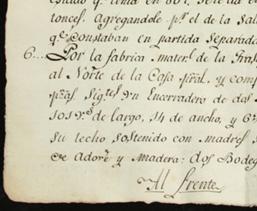 tonces. Agregandole pr. el de la Sal
qe. constaban en partida separada
6... Por la fabrica materl. de la
al Norte de la Casa pral. y comp
pzas. sigtes. Un Encerradero de dos
de largo, 14 de ancho, y 6
su techo sostenido con madres
de Adove y Madera: dos Bodeg
Al frente